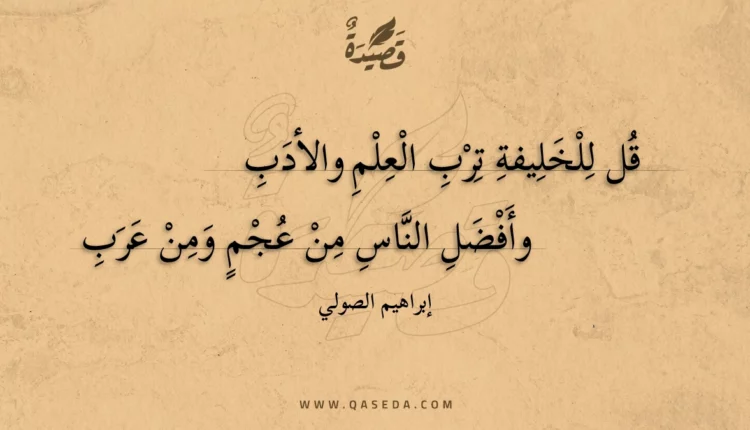 قَصِيْدَةٌ
قُل لِلْخَلِيفةِ تِرْبِ الْعِلْمِ والأدَبِ
وأَفْضَلِ النَّاسِ مِنْ عُجْمٍ وَمِنْ عَرَبِ
إبراهيم الصولي
WWW.QASEDA.COM